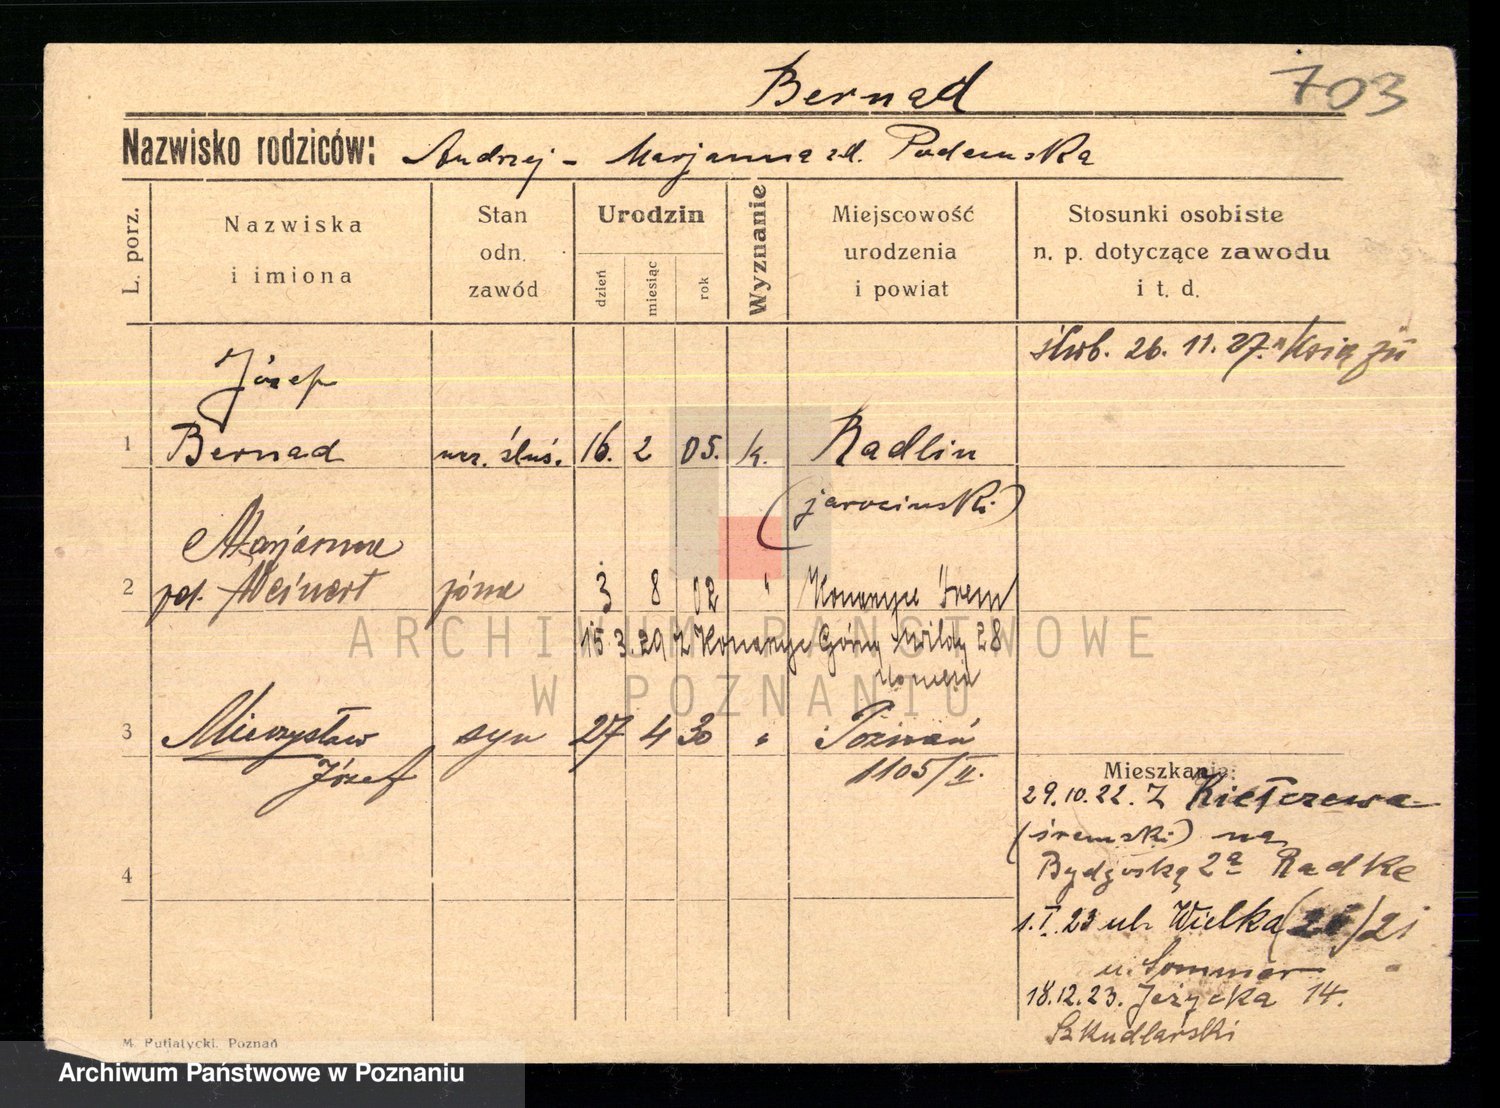 Bernad
703
Nazwisko rodziców: Andrzej - Marjanna zd.
L. porz.
Nazwiska
i imiona
Stan
odn.
zawód
Urodzin
dzień
miesiąc
rok
Wyznanie
Miejscowość
urodzenia
i powiat
Stosunki osobiste
n. p. dotyczące zawodu
i t. d.
ślub. 26. 11. 27.
Józef
1 Bernad ucz. ślus. 16. 2 05. k. Radlin
(jarocinski)
Marjanna
2 Weinert żona 3 8 02 " Konarzyce Śrem
15 3. 29 z Konarzyc Górny Wildy 28
3 Mieczysław syn 27 4 30 " Poznań
Józef 1105/II.
Mieszkanie:
29.10.22. z Kiełczewa
(śremski) na
4 Bydgoską 2a Radke
1.I.23 ul. Wielka 21
u. Sommer
18.12.23. Jeżycka 14.
Szkudlarski
M. Putiatycki. Poznań
ARCHIWUM PAŃSTWOWE
W POZNANIU
Archiwum Państwowe w Poznaniu